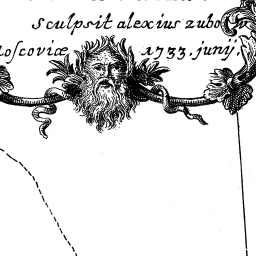 Sculpsit alexius zubo
Moscoviæ 1733. junij.